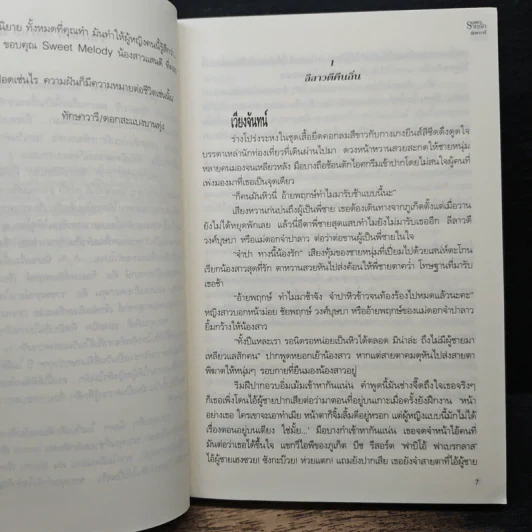 นิยาย ทั้งหมดที่คุณทำ มันทำให้ผู้หญิงคนนี้รู้สึกว่า
ขอบคุณ Sweet Melody น้องสาวแสนดี
ความฝันก็มีความหมายต่อชีวิตเช่นนั้น
ทักษาวารี/ดอกสะแบงบานทุ่ง
1
ลีลาวดีคืนถิ่น
เวียงจันทน์
ร่างโปร่งระหงในชุดเสื้อยืดคอกลมสีขาวกับกางเกงยีนส์สีซีดดึงดูดใจ
บรรดาเหล่านักท่องเที่ยวที่เดินผ่านไปมา ดวงหน้าหวานสวยสะกดให้ชายหนุ่ม
หลายคนมองจนเหลียวหลัง มือบางถือช้อนตักไอศกรีมเข้าปากโดยไม่สนใจผู้คนที่
เพ่งมองมาที่เธอเป็นจุดเดียว
“ก็คนมันหิวนี่ อ้ายพฤกษ์ทำไมมารับช้าแบบนี้นะ”
เสียงหวานบ่นถึงผู้เป็นพี่ชาย เธอต้องเดินทางจากภูเก็ตตั้งแต่เมื่อวาน
ยังไม่ได้หยุดพักเลย แล้วนี่อีตาพี่ชายสุดแสบทำไมยังไม่มารับเธออีก ลีลาวดี
วงศ์บุษบา หรือแม่ดอกจำปาลาว ต่อว่าต่อขานผู้เป็นพี่ชายในใจ
“จำปา ทางนี้น้องรัก” เสียงทุ้มของชายหนุ่มที่เปี่ยมไปด้วยเสน่ห์ตะโกน
เรียกน้องสาวสุดที่รัก ตาหวานสวยหันไปส่งค้อนให้พี่ชายตาคว่ำ โทษฐานที่มารับ
เธอช้า
“อ้ายพฤกษ์ ทำไมมาช้าจัง จำปาหิวข้าวจนท้องร้องไปหมดแล้วนะคะ”
หญิงสาวบอกหน้าม่อย ชัยพฤกษ์ วงศ์บุษบา หรืออ้ายพฤกษ์ของแม่ดอกจำปาลาว
ยิ้มกว้างให้น้องสาว
“ทั้งปีแหละเรา รอนิดรอหน่อยเป็นหิวได้ตลอด มิน่าล่ะ ถึงไม่มีผู้ชายมา
เหลียวแลสักคน” ปากพูดหยอกเย้าน้องสาว หากแต่สายตาคมดุหันไปส่งสายตา
พิฆาตให้หนุ่มๆ รอบกายที่ยืนมองน้องสาวอยู่
ริมฝีปากอวบอิ่มเม้มเข้าหากันแน่น คำพูดนี้มันช่างจี้ดถึงใจเธอจริงๆ
ก็เธอเพิ่งโดนไอ้ผู้ชายปากเสียต่อว่ามาตอนที่อยู่บนเกาะเมื่อครั้งยังฝึกงาน ‘หน้า
อย่างเธอ ใครเขาจะเอาทำเมีย หน้าตาก็จิ้มลิ้มดีอยู่หรอก แต่ผู้หญิงแบบนี้มักไม่ได้
เรื่องตอนอยู่บนเตียง ใช่มั้ย...’ มือบางกำเข้าหากันแน่น เธอจดจำหน้าไอ้คนที่
มันต่อว่าเธอได้ขึ้นใจ แขกวีไอพีของภูเก็ต บีช รีสอร์ต ‘ฟาบิโอ้ ฟาเบรกลาส’
ไอ้ผู้ชายเฮงซวย! ซังกะบ๊วย! ห่วยแตก! แถมยังปากเสีย เธอยังจำสายตาที่ไอ้ผู้ชาย
7